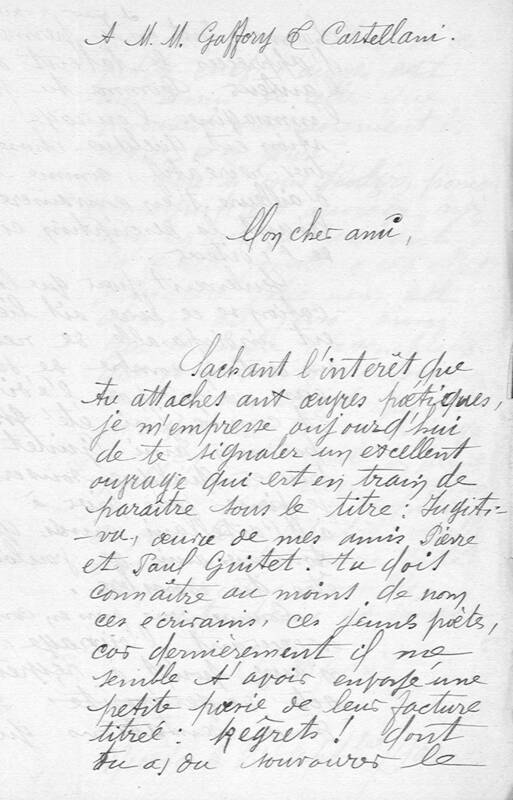 A M. M. Gaffory & Castellani.
Mon cher ami,
Sachant l'interêt que
tu attaches aux œuvres poétiques,
je m'empresse aujourd'hui
de te signaler un excellent
ouvrage qui est en train de
paraître sous le titre : Fugiti-
-va, œuvre de mes amis Pierre
et Paul Guitet. tu dois
connaître au moins, de nom
ces ecrivains, ces jeunes poètes,
car dernièrement il me
semble t'avoir envoyé une
petite poésie de leur facture
titreé : Regrets ! dont
tu as du savourer le